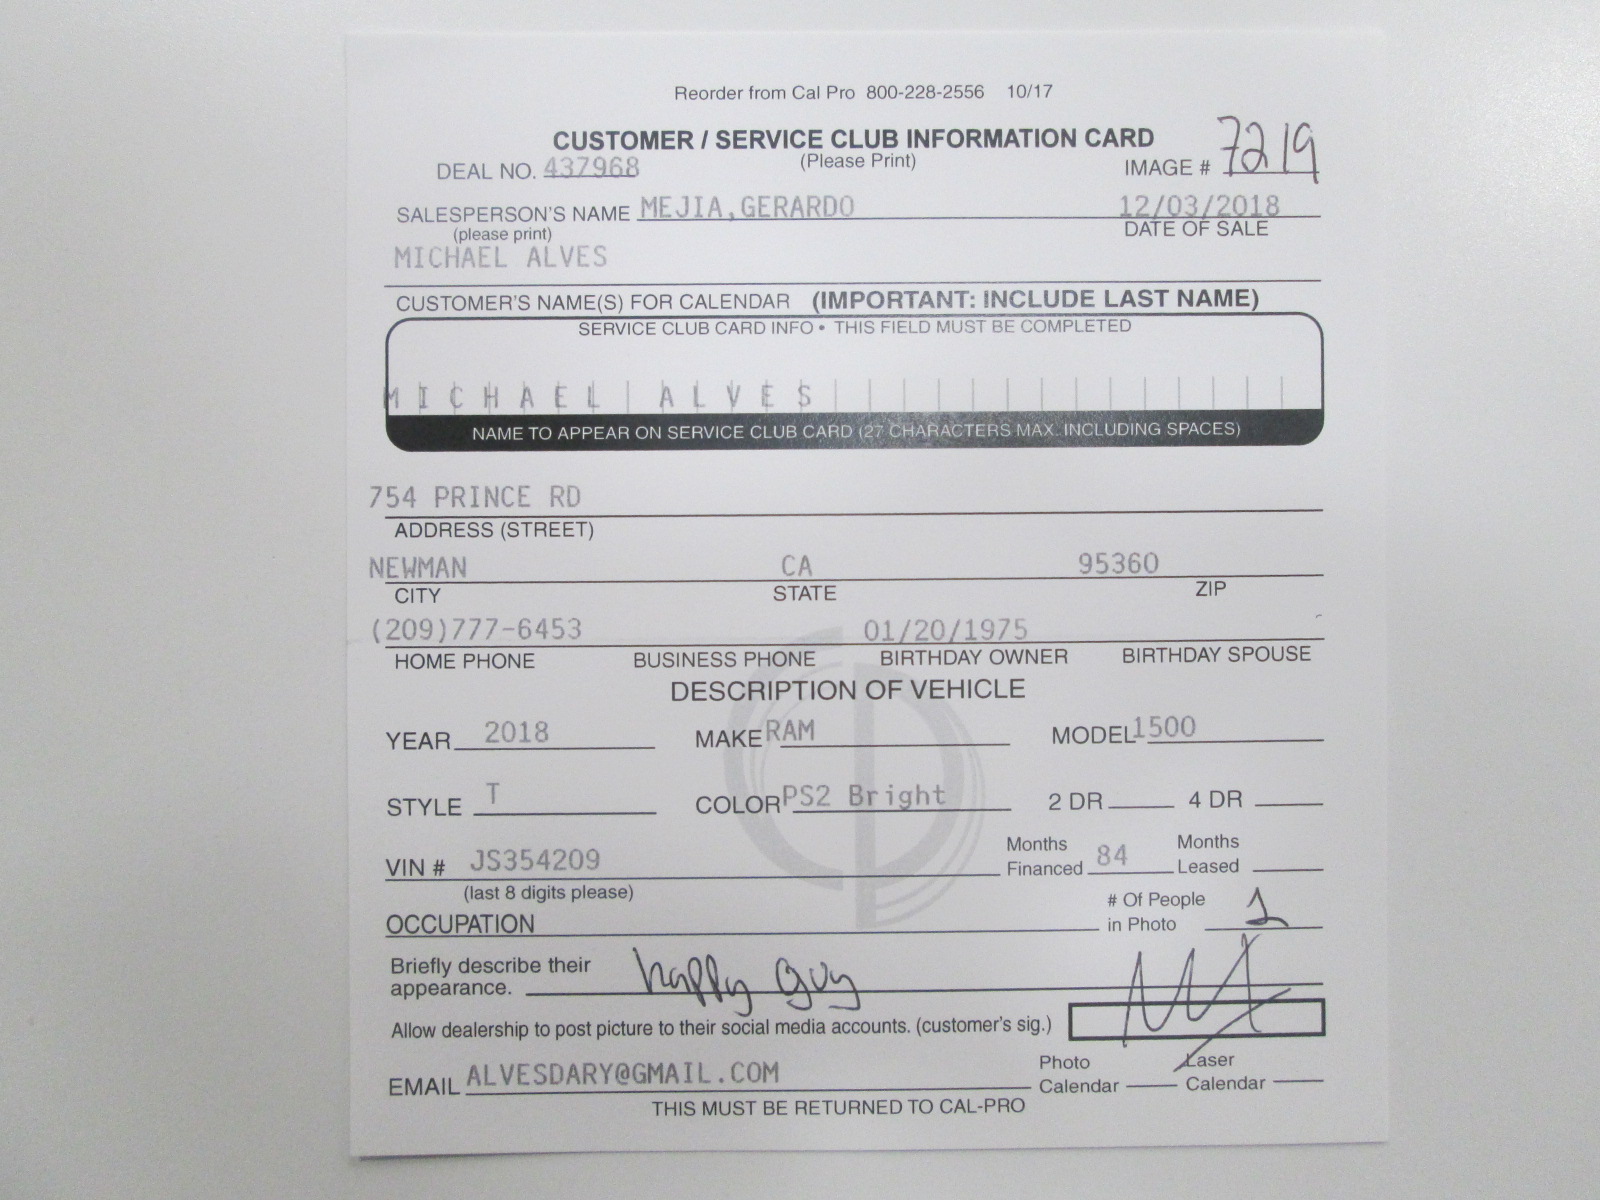 Reorder from Cal Pro 800-228-2556 10/17
CUSTOMER / SERVICE CLUB INFORMATION CARD
(Please Print)
DEAL NO. 437968
IMAGE # 7219
SALESPERSON'S NAME MEJIA,GERARDO 12/03/2018
(please print) DATE OF SALE
MICHAEL ALVES
CUSTOMER'S NAME(S) FOR CALENDAR (IMPORTANT: INCLUDE LAST NAME)
SERVICE CLUB CARD INFO • THIS FIELD MUST BE COMPLETED
MICHAEL ALVES
NAME TO APPEAR ON SERVICE CLUB CARD (27 CHARACTERS MAX. INCLUDING SPACES)
754 PRINCE RD
ADDRESS (STREET)
NEWMAN CA 95360
CITY STATE ZIP
(209)777-6453 01/20/1975
HOME PHONE BUSINESS PHONE BIRTHDAY OWNER BIRTHDAY SPOUSE
DESCRIPTION OF VEHICLE
YEAR 2018 MAKE RAM MODEL 1500
STYLE T COLOR PS2 Bright 2 DR 4 DR
VIN # JS354209 Months Financed 84 Months Leased
(last 8 digits please)
OCCUPATION # Of People in Photo 1
Briefly describe their appearance. happy guy
Allow dealership to post picture to their social media accounts. (customer's sig.)
EMAIL ALVESDARY@GMAIL.COM Photo Calendar Laser Calendar
THIS MUST BE RETURNED TO CAL-PRO